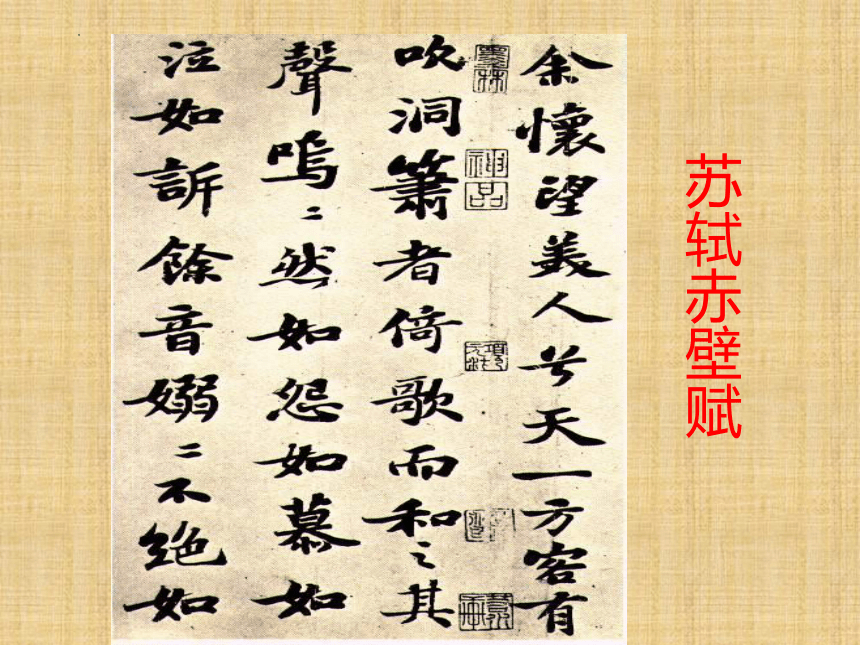 苏轼赤壁赋
余懷望美人兮天一方客有
吹洞簫者倚歌而和之其
聲嗚〻然如怨如慕如
泣如訴餘音嫋〻不絕如
神品